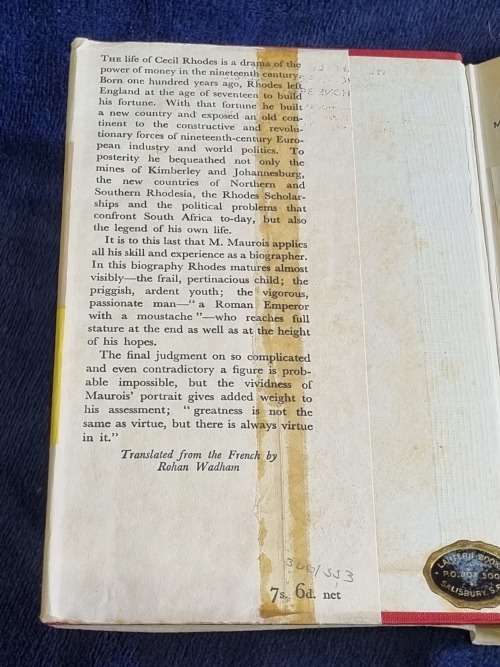 THE life of Cecil Rhodes is a drama of the
power of money in the nineteenth century.
Born one hundred years ago, Rhodes left
England at the age of seventeen to build
his fortune. With that fortune he built
a new country and exposed an old con-
tinent to the constructive and revolu-
tionary forces of nineteenth-century Euro-
pean industry and world politics. To
posterity he bequeathed not only the
mines of Kimberley and Johannesburg,
the new countries of Northern and
Southern Rhodesia, the Rhodes Scholar-
ships and the political problems that
confront South Africa to-day, but also
the legend of his own life.
It is to this last that M. Maurois applies
all his skill and experience as a biographer.
In this biography Rhodes matures almost
visibly—the frail, pertinacious child; the
priggish, ardent youth; the vigorous,
passionate man—“a Roman Emperor
with a moustache”—who reaches full
stature at the end as well as at the height
of his hopes.
The final judgment on so complicated
and even contradictory a figure is prob-
able impossible, but the vividness of
Maurois’ portrait gives added weight to
his assessment; “greatness is not the
same as virtue, but there is always virtue
in it.”
Translated from the French by
Rohan Wadham
7s. 6d. net
LANTERN BOOK
P.O. BOX 500
SALISBURY, S.R.
M